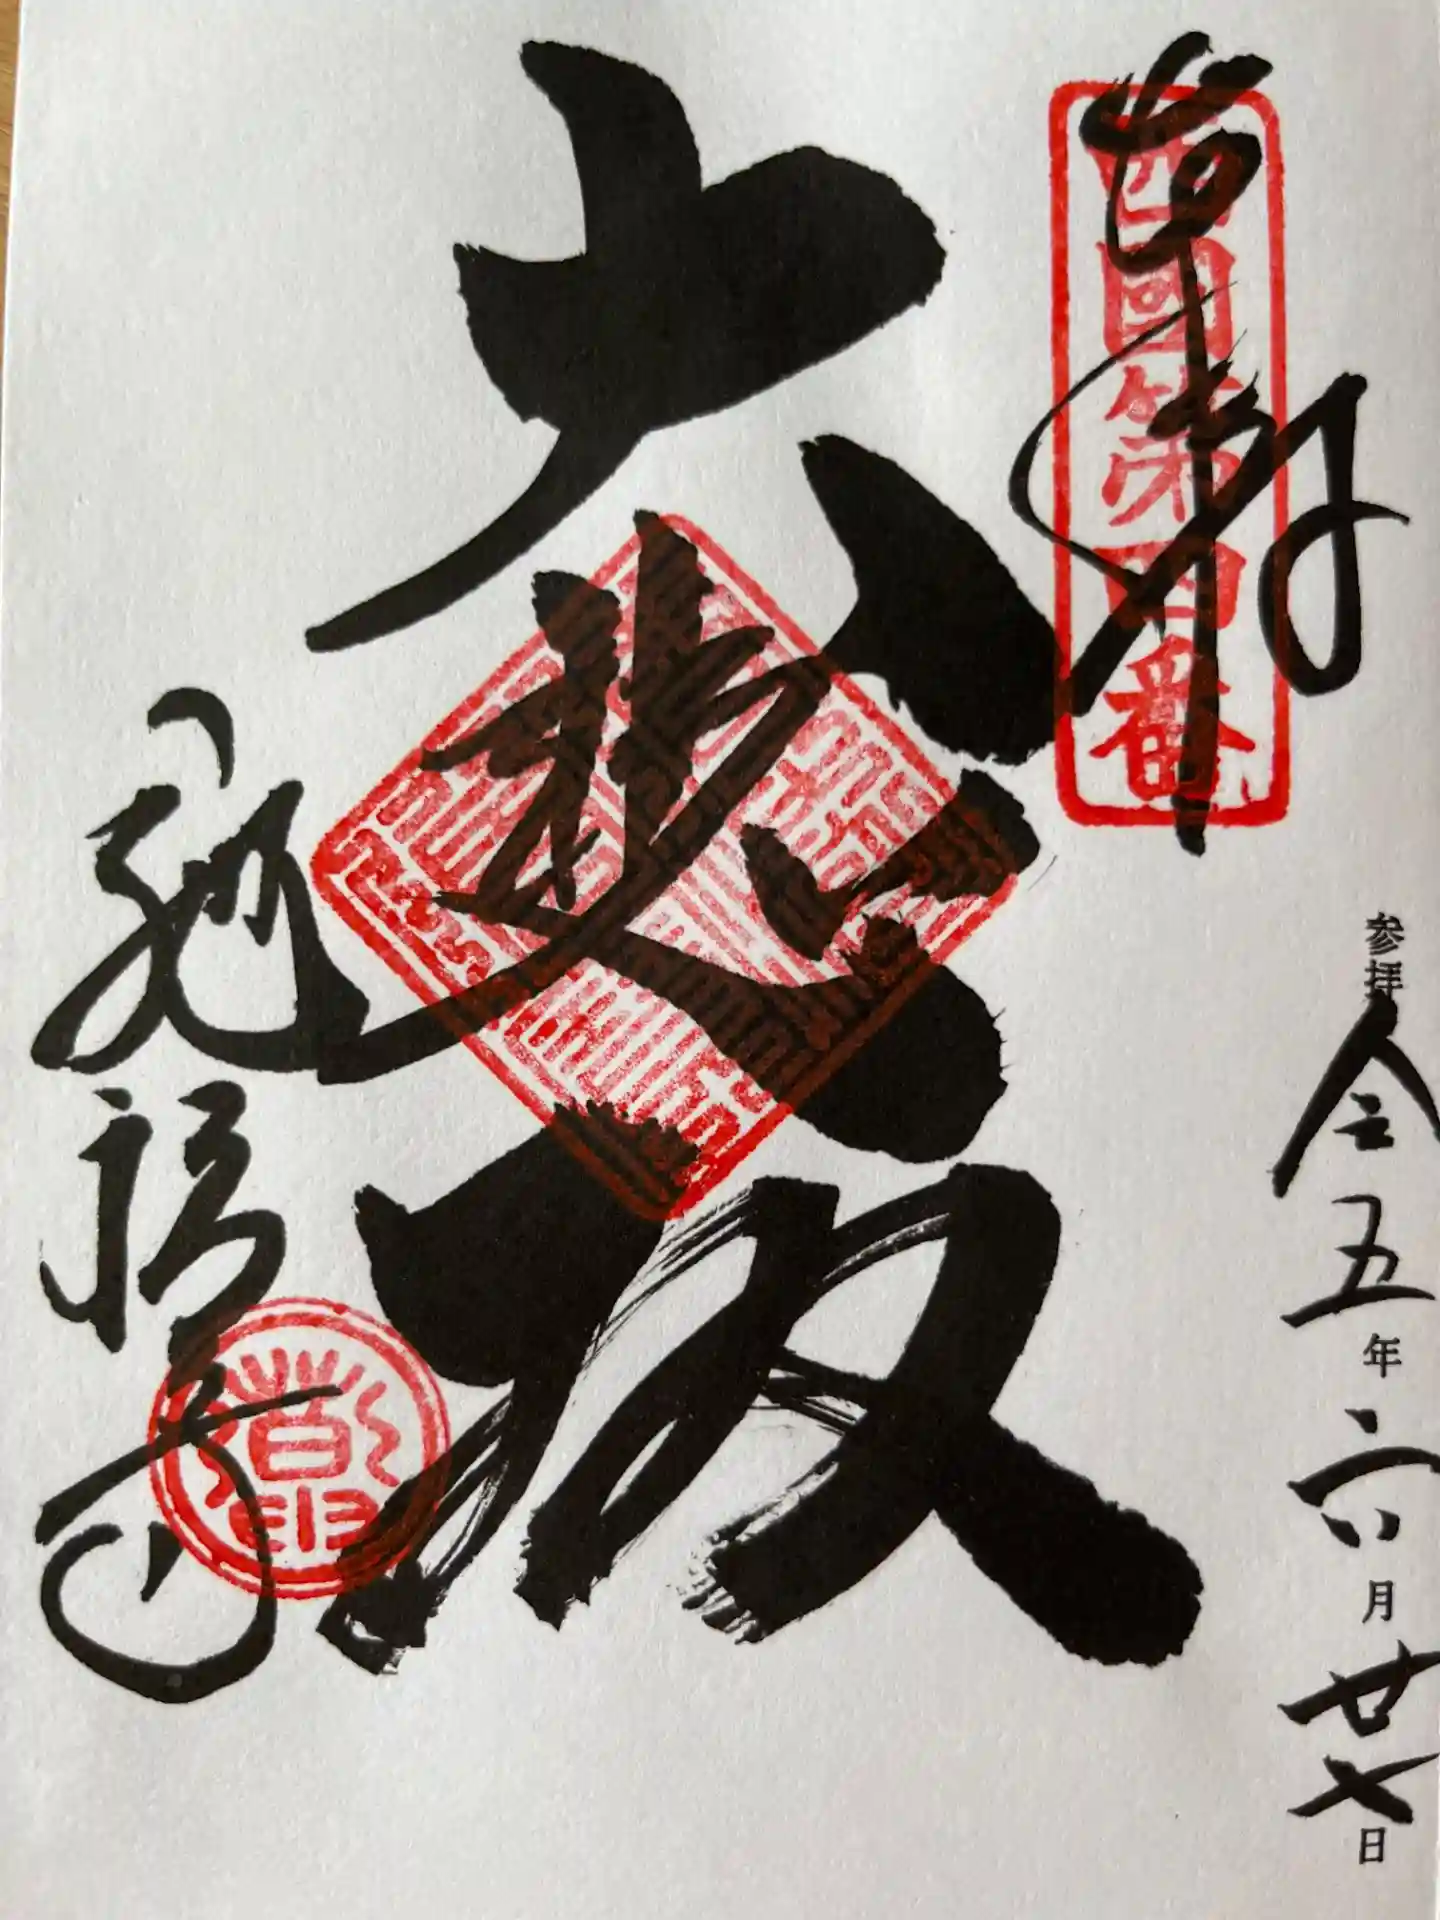 奉拝
西國第四番
大悲殿
施福寺
参拝
令五年六月廿七日